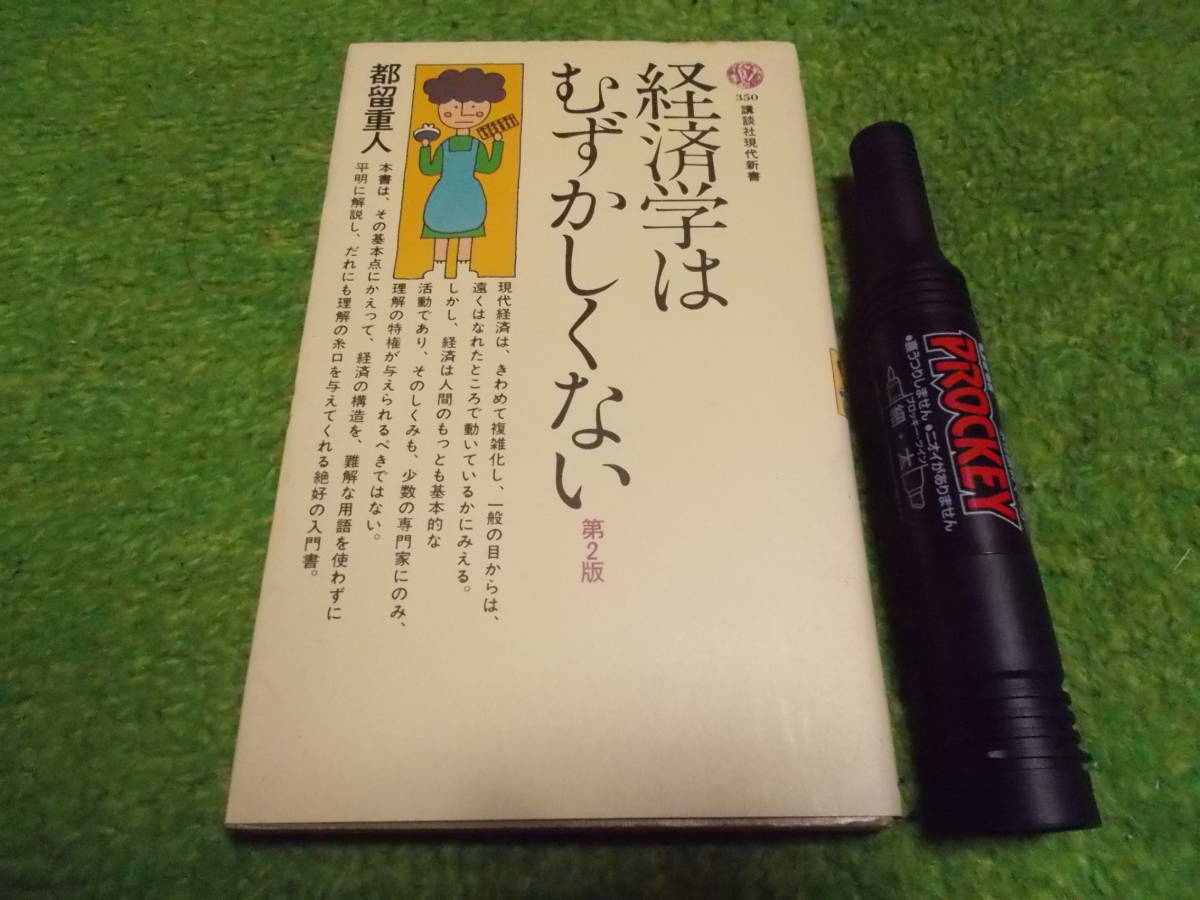 350
講談社現代新書
経済学は
むずかしくない
第2版
都留重人
現代経済は、きわめて複雑化し、一般の目からは、
遠くはなれたところで動いているかにみえる。
しかし、経済は人間のもっとも基本的な
活動であり、そのしくみも、少数の専門家にのみ、
理解の特権が与えられるべきではない。
本書は、その基本点にかえって、経済の構造を、難解な用語を使わずに
平明に解説し、だれにも理解の糸口を与えてくれる絶好の入門書。
PROCKEY
プロッキー・ツイン
●裏うつりしません●ニオイがありません
細・太